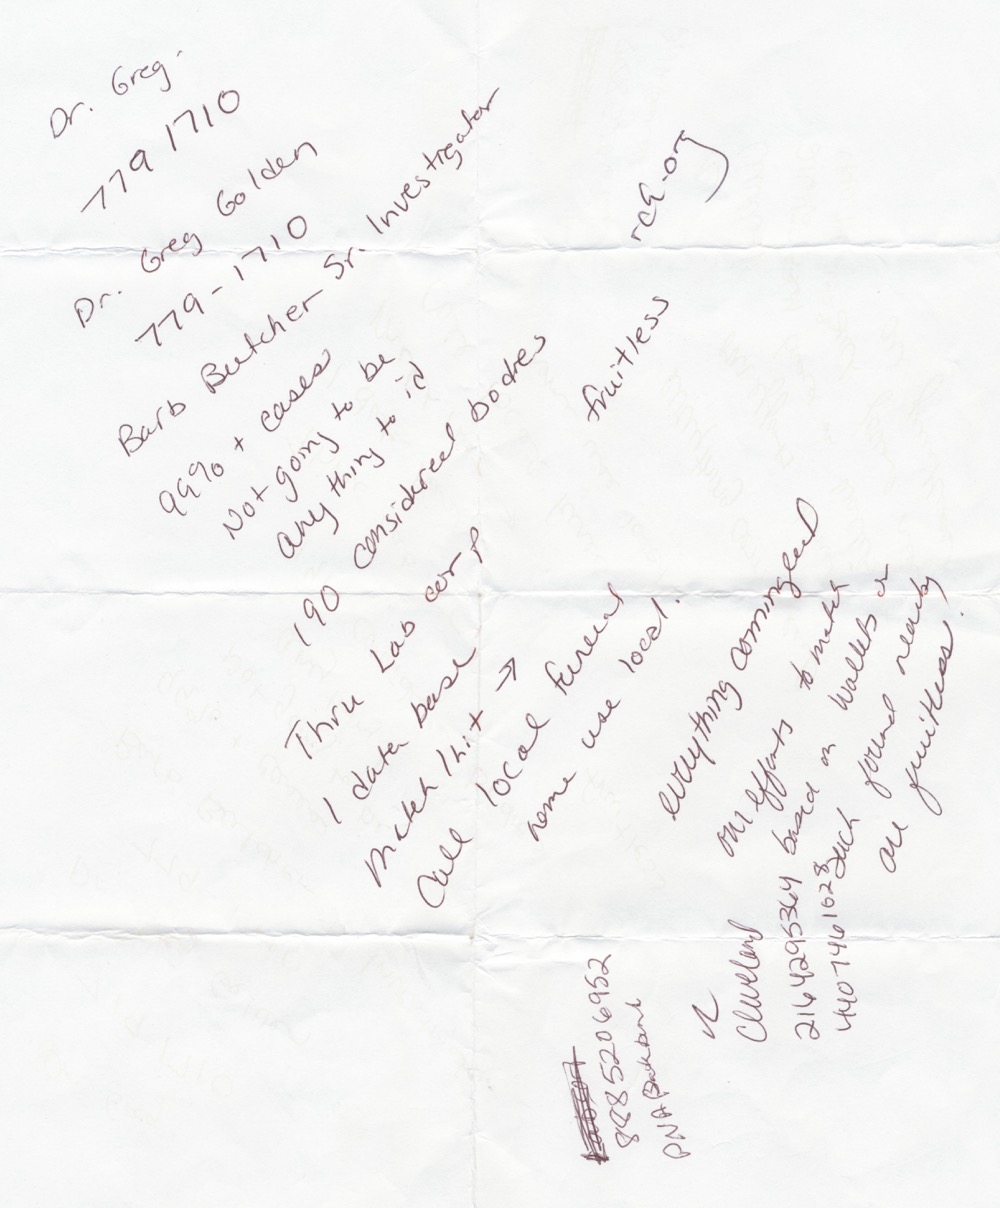 Dr. Greg
779 1710
Dr. Greg Golden
779-1710
Barb Butcher Sr. Investigator
99% + cases
Not going to be
anything to id
190 considered bodies
Thru Lab corp
1 data base
match 1 hit →
Call local funeral
home use local.
rca.org
fruitless
everything comingeled
our efforts to match
based on wallets or
such found nearby
are fruitless.
Cleveland
216 4295364
440 746 1628
868 5206952
DNA Bank